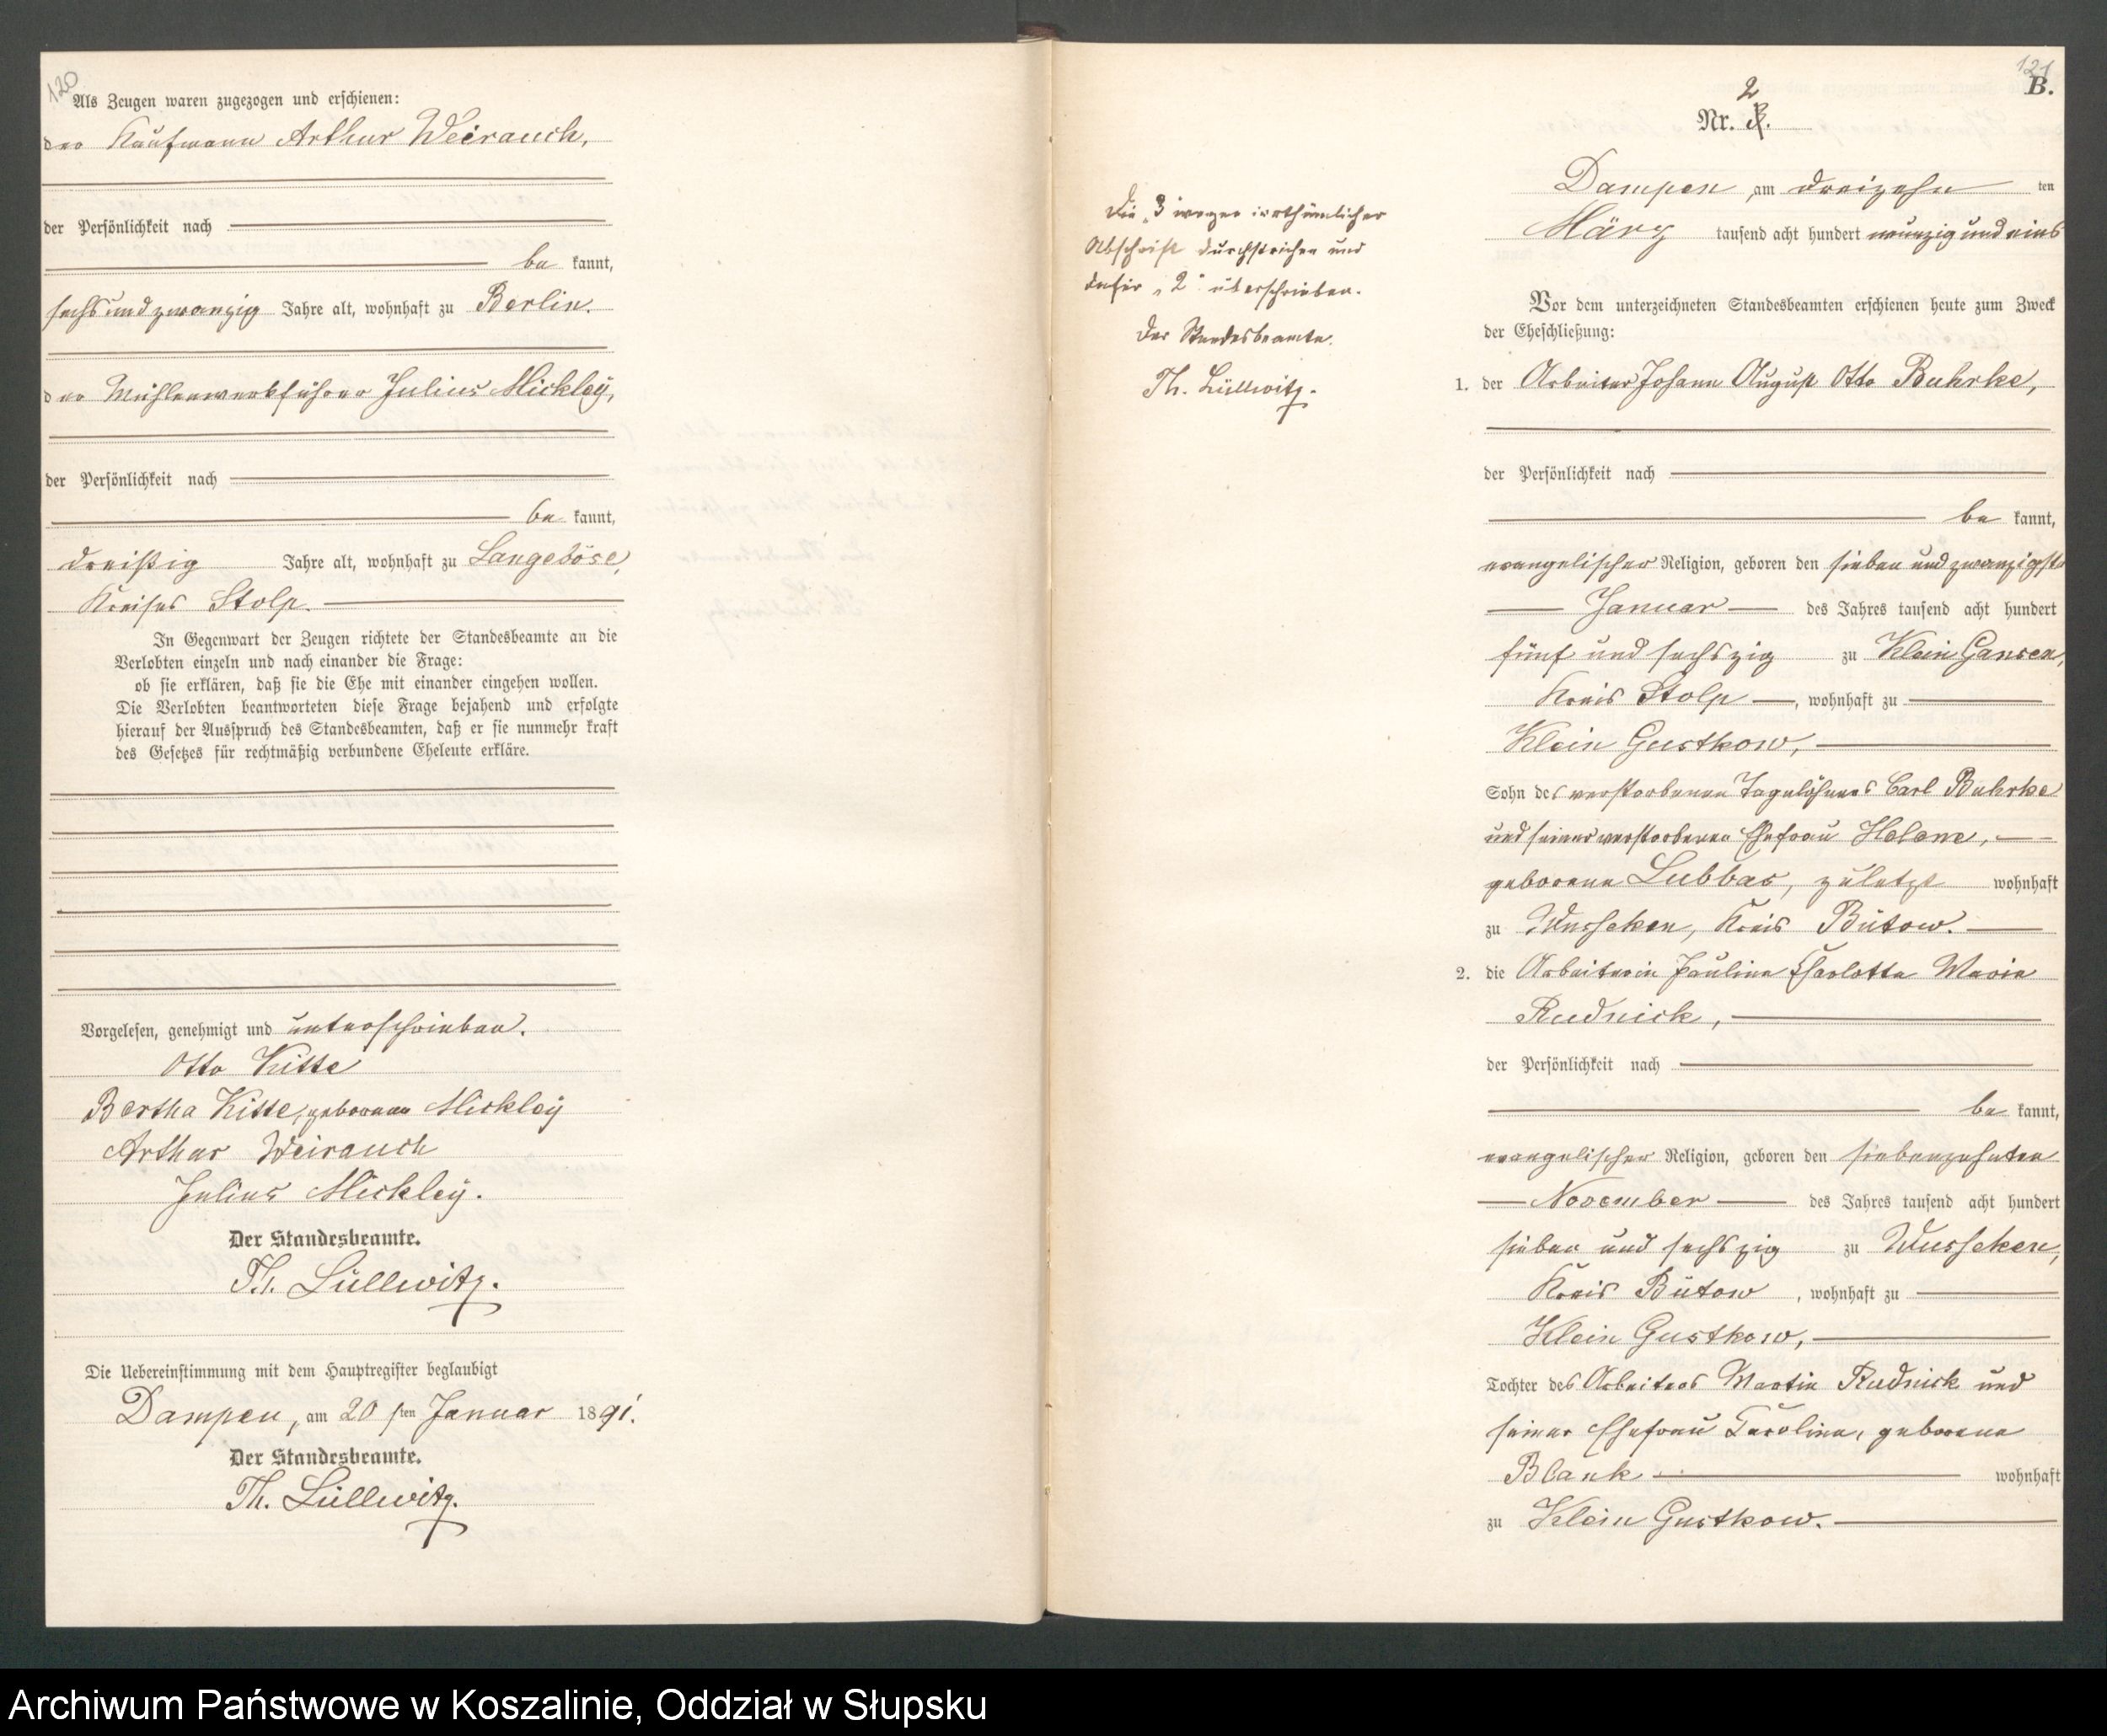 120
Als Zeugen waren zugezogen und erschienen:
der Kaufmann Arthur Weirauch,
der Persönlichkeit nach
be kannt,
sechs und zwanzig Jahre alt, wohnhaft zu Berlin.
der Mühlenwerkführer Julius Mickley,
der Persönlichkeit nach
be kannt,
dreißig Jahre alt, wohnhaft zu Langeböse,
Kreises Stolp.
In Gegenwart der Zeugen richtete der Standesbeamte an die
Verlobten einzeln und nach einander die Frage:
ob sie erklären, daß sie die Ehe mit einander eingehen wollen.
Die Verlobten beantworteten diese Frage bejahend und erfolgte
hierauf der Ausspruch des Standesbeamten, daß er sie nunmehr kraft
des Gesetzes für rechtmäßig verbundene Eheleute erkläre.
Vorgelesen, genehmigt und unterschrieben.
Otto Kitte
Bertha Kitte, geborene Mickley
Arthur Weirauch
Julius Mickley.
Der Standesbeamte.
Th. Lüllwitz.
Die Uebereinstimmung mit dem Hauptregister beglaubigt
Dampen, am 20 sten Januar 1891.
Der Standesbeamte.
Th. Lüllwitz.
121
B.
2
Nr. 3.
Die „3" wegen irrthümlicher
Abschrift durchstrichen und
dafür „2" überschrieben.
Der Standesbeamte.
Th. Lüllwitz.
Dampen, am dreizehn ten
März tausend acht hundert neunzig und eins
Vor dem unterzeichneten Standesbeamten erschienen heute zum Zweck
der Eheschließung:
1. der Arbeiter Johann August Otto Buhrke,
der Persönlichkeit nach
be kannt,
evangelischer Religion, geboren den sieben und zwanzigsten
Januar des Jahres tausend acht hundert
fünf und sechszig zu Klein Gansen,
Kreis Stolp, wohnhaft zu
Klein Gustkow,
Sohn des verstorbenen Tagelöhners Carl Buhrke
und seiner verstorbenen Ehefrau Helene,
geborene Lubbas, zuletzt wohnhaft
zu Wusseken, Kreis Bütow.
2. die Arbeiterin Pauline Charlotte Marie
Rudnick,
der Persönlichkeit nach
be kannt,
evangelischer Religion, geboren den siebenzehnten
November des Jahres tausend acht hundert
sieben und sechszig zu Wusseken,
Kreis Bütow, wohnhaft zu
Klein Gustkow,
Tochter des Arbeiters Martin Rudnick und
seiner Ehefrau Caroline, geborene
Blank wohnhaft
zu Klein Gustkow.
Archiwum Państwowe w Koszalinie, Oddział w Słupsku